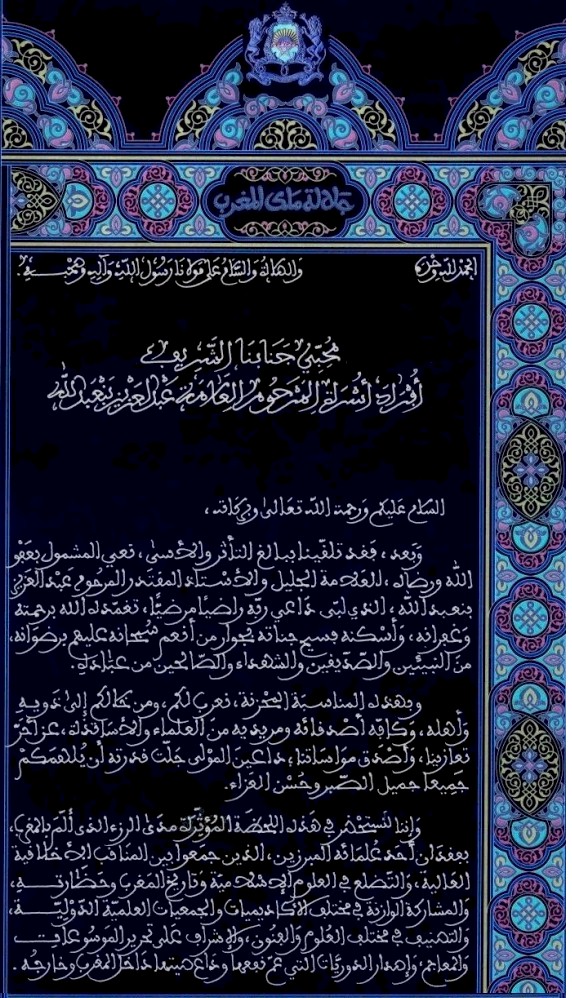 جلالة ملك المغرب
الحمد لله وحده والصلاة والسلام على مولانا رسول الله وآله وصحبه.
محبي جنابنا الشريف
أفراد أسرة المرحوم العلامة عبد العزيز بنعبد الله
السلام عليكم ورحمة الله تعالى وبركاته،
وبعد، فقد تلقينا ببالغ التأثر والأسى، نعي المشمول بعفو
الله ورضاه، العلامة الجليل والأستاذ المقتدر المرحوم عبد العزيز
بنعبد الله، الذي لبى داعي ربه راضيا مرضيا، تغمده الله برحمته
وغفرانه، وأسكنه فسيح جنانه بجوار من أنعم سبحانه عليهم برضوانه،
من النبيئين والصديقين والشهداء والصالحين من عباده.
وبهذه المناسبة المحزنة، نعرب لكم، ومن خلالكم إلى ذويه
وأهله، وكافة أصدقائه ومريديه من العلماء والأساتذة، عن أحر
تعازينا، وأصدق مواساتنا، داعين المولى جلت قدرته أن يلهمكم
جميعا جميل الصبر وحسن العزاء.
وإننا لنستحضر في هذه اللحظة المؤثرة مدى الرزء الذي ألم بالمغرب،
بفقدان أحد علمائه المبرزين، الذين جمعوا بين المناقب الأخلاقية
العالية، والتضلع في العلوم الإسلامية وتاريخ المغرب وحضارته،
والمشاركة الوازنة في مختلف الأكاديميات والجمعيات العلمية الدولية،
والتصنيف في مختلف العلوم والفنون، والإشراف على تحرير الموسوعات
والمعاجم، وإصدار الدوريات التي عم نفعها وذاع صيتها داخل المغرب وخارجه.